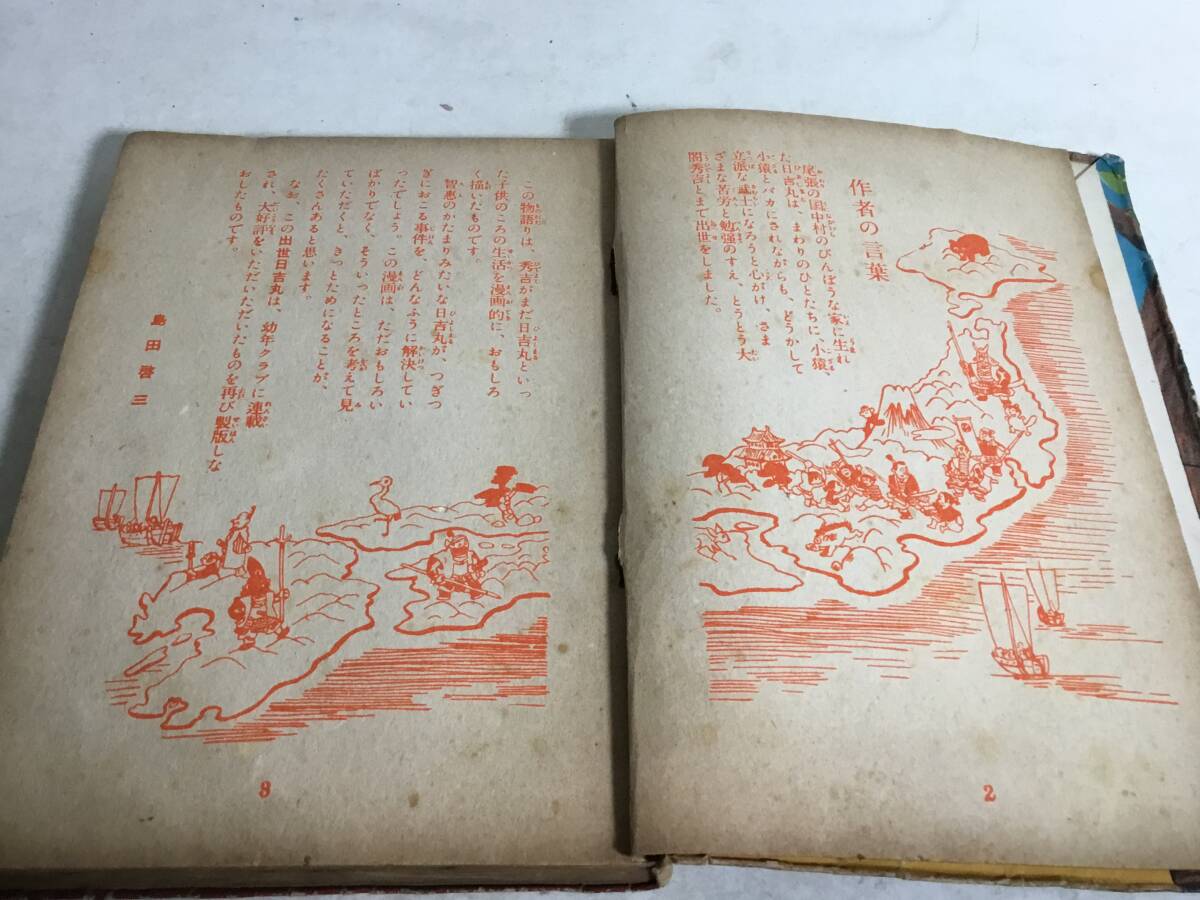 作者の言葉
尾張の国中村のびんぼうな家に生れ
た日吉丸は、まわりのひとたちに、小猿
小猿とバカにされながらも、どうかして
立派な武士になろうと心がけ、さま
ざまな苦労と勉強のすえ、とうとう大
閤秀吉とまで出世をしました。
2
この物語りは、秀吉がまだ日吉丸といっ
た子供のころの生活を漫画的に、おもしろ
く描いたものです。
智恵のかたまりみたいな日吉丸が、つぎつ
ぎにおこる事件を、どんなふうに解決してい
ったでしょう。この漫画は、ただおもしろい
ばかりでなく、そういったところを考えて見
ていただくと、きっとためになることが、
たくさんあると思います。
なお、この出世日吉丸は、幼年クラブに連載
され、大好評をいただいたものを再び製版しな
おしたものです。
島田啓三
3